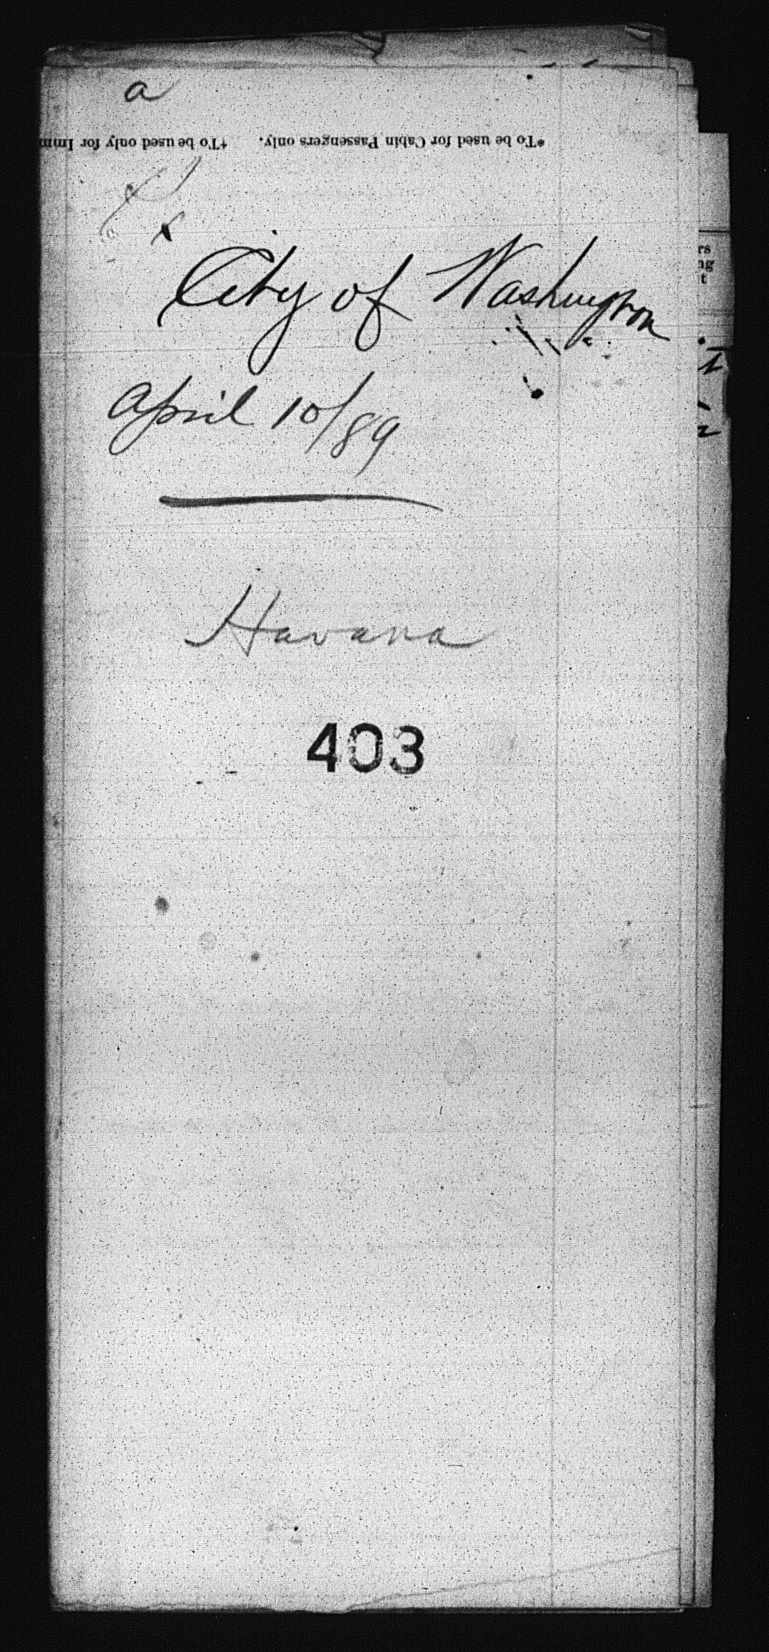 a
*To be used for Cabin Passengers only. †To be used only for Imm
City of Washington
April 10/89
Havana
403
rs
ng
t